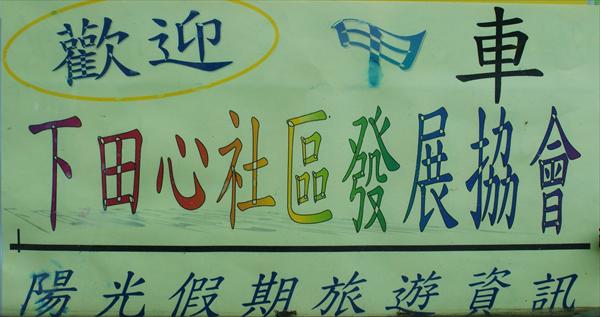 歡迎 車
下田心社區發展協會
陽光假期旅遊資訊